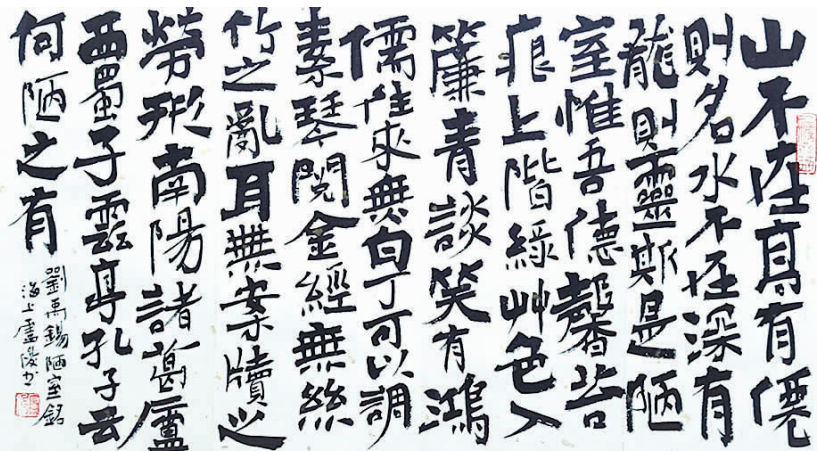 山不在高有僊
則名水不在深有
龍則靈斯是陋
室惟吾德馨苔
痕上階綠艸色入
簾青談笑有鴻
儒往来無白丁可以調
素琴閱金經無絲
竹之亂耳無案牘之
勞形南陽諸葛廬
西蜀子雲亭孔子云
何陋之有
劉禹錫陋室銘
海上盧俊书